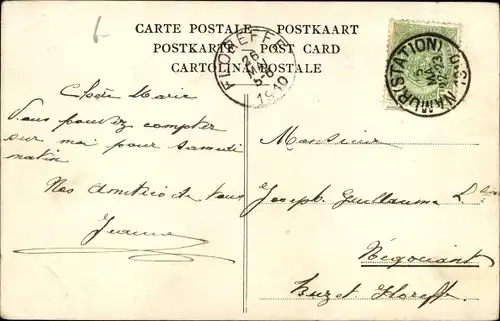 CARTE POSTALE - POSTKAART
POSTKARTE - POST CARD
CARTOLINA POSTALE
FLOREFFE
26
1910
NAMUR (STATION)
Chère Marie
Vous pouvez compter
sur moi pour samedi
matin
Nos amitiés à tous
Jeanne
Monsieur
Joseph Guillaume
Négociant
Buzet Floreffe